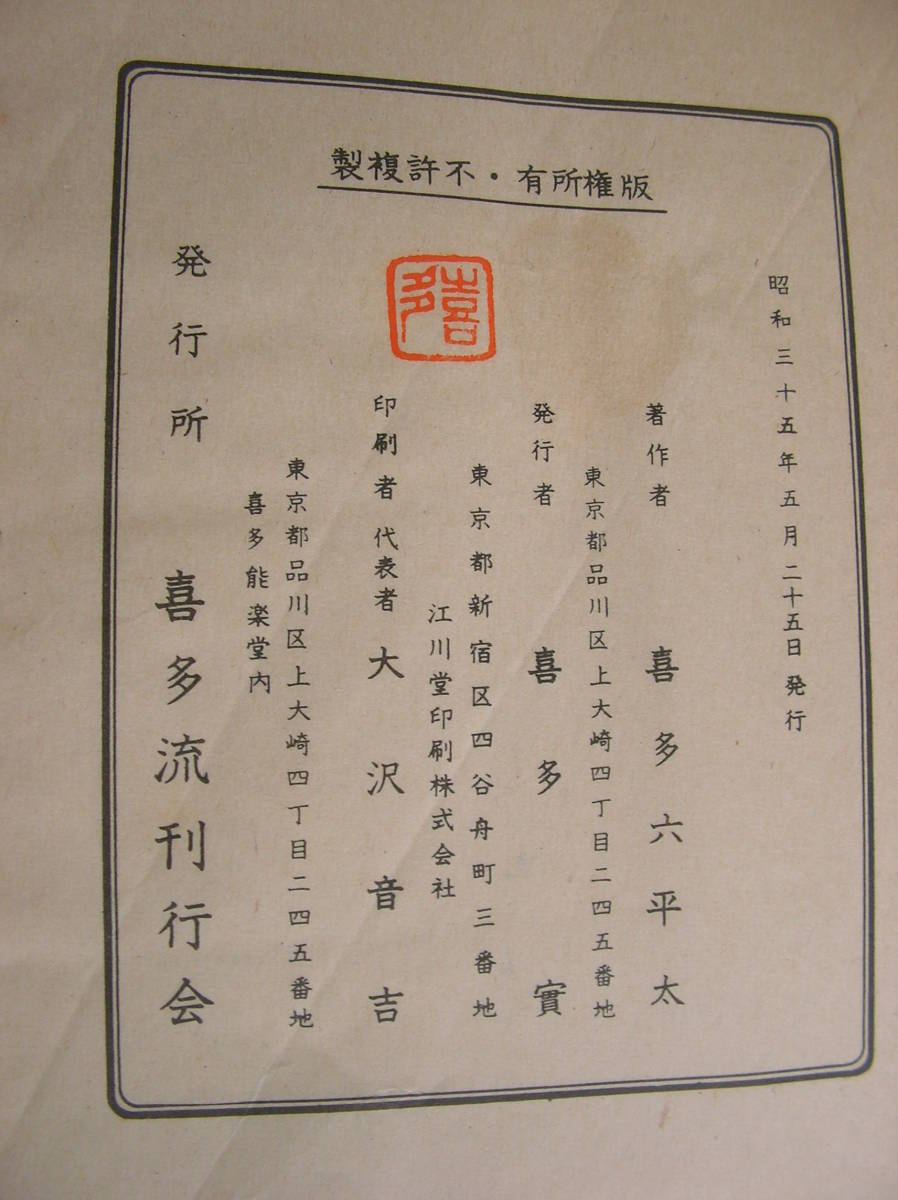 版権所有・不許複製
昭和三十五年五月二十五日発行
著作者 喜多六平太
東京都品川区上大崎四丁目二四五番地
発行者 喜多實
東京都新宿区四谷舟町三番地
江川堂印刷株式会社
印刷者 代表者 大沢音吉
東京都品川区上大崎四丁目二四五番地
喜多能楽堂内
発行所 喜多流刊行会
喜多